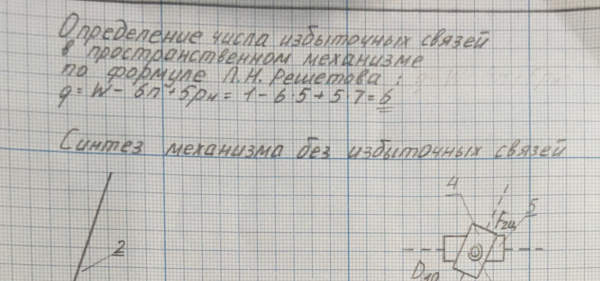 Определение числа избыточных связей
в пространственном механизме
по формуле Л.Н. Решетова:
q = W - 6n + 5pн = 1 - 6·5 + 5·7 = 6
Синтез механизма без избыточных связей
4
5
F2ц
2